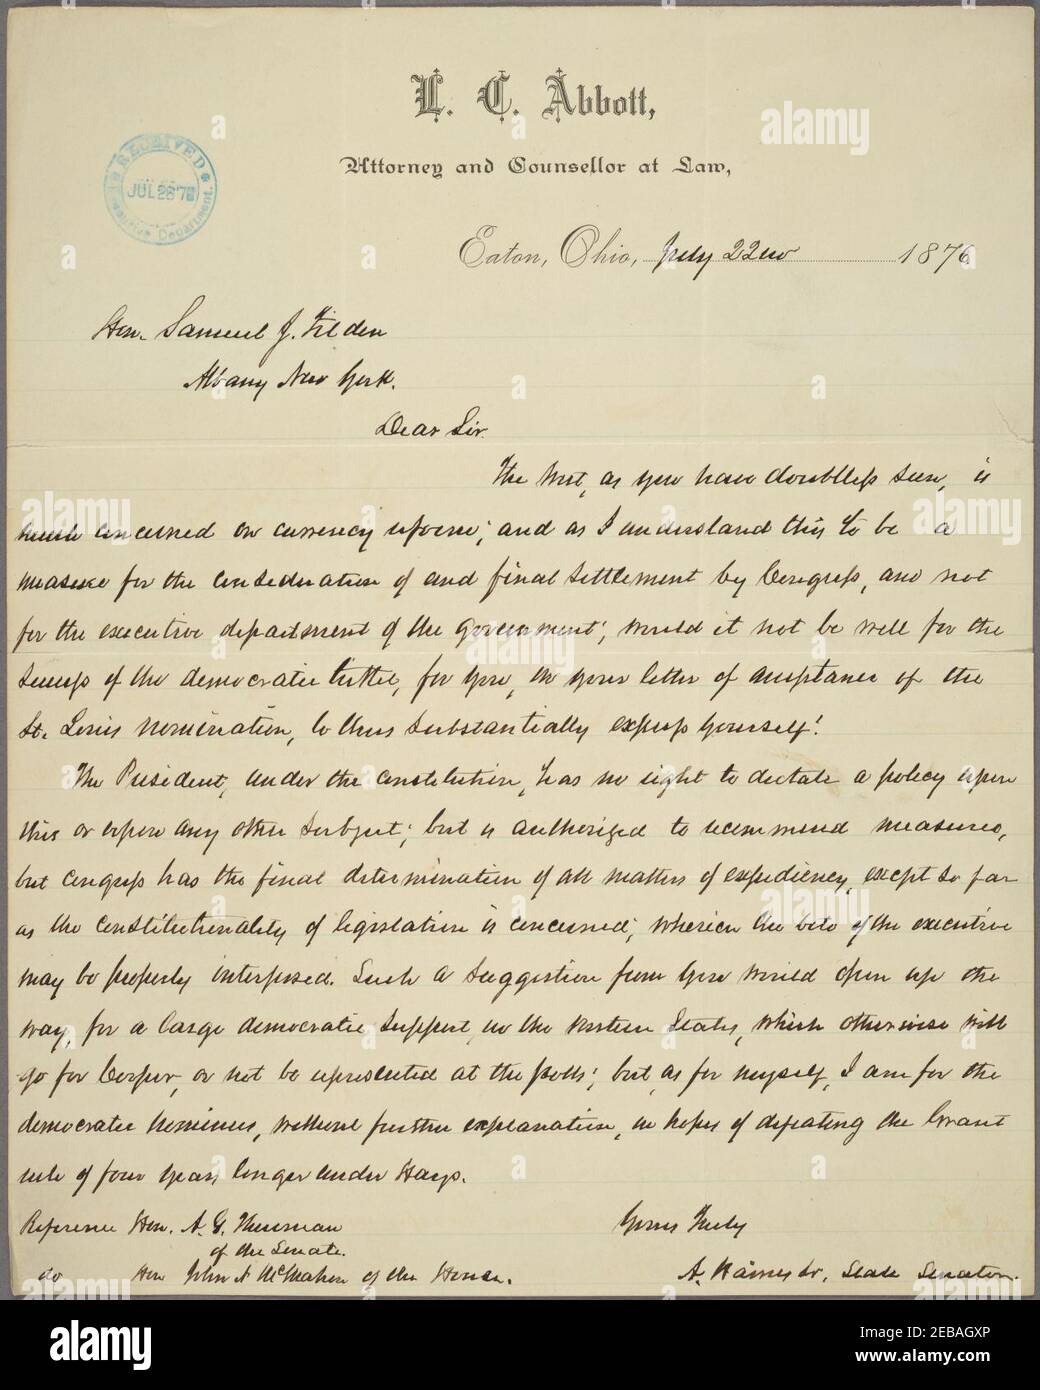 L. C. Abbott,
Attorney and Counsellor at Law,
RECEIVED
JUL 26 76
Executive Department.
Eaton, Ohio, July 22nd 1876
Hon. Samuel J. Tilden
Albany New York.
Dear Sir.
The West, as you have doubtless seen, is
much concerned on currency reform; and as I understand this to be a
measure for the consideration of and final settlement by Congress, and not
for the executive department of the government; would it not be well for the
success of the democratic ticket, for you, in your letter of acceptance of the
St. Louis nomination, to thus substantially express yourself!
The President, under the constitution, has no right to dictate a policy upon
this or upon any other subject; but is authorized to recommend measures,
but congress has the final determination of all matters of expediency, except so far
as the constitutionality of legislation is concerned; wherein the veto of the executive
may be properly interposed. Such a suggestion from you would open up the
way, for a large democratic support, in the western States, which otherwise will
go for Cooper, or not be represented at the polls; but, as for myself, I am for the
democratic nominees, without further explanation, in hopes of defeating the Grant
rule of four years longer under Hays.
Reference Hon. A. G. Thurman
of the Senate.
do Hon John A McMahon of the House.
Yours Truly
A. Haines Sr, State Senator.
alamy
Image ID: 2EBAGXP
www.alamy.com